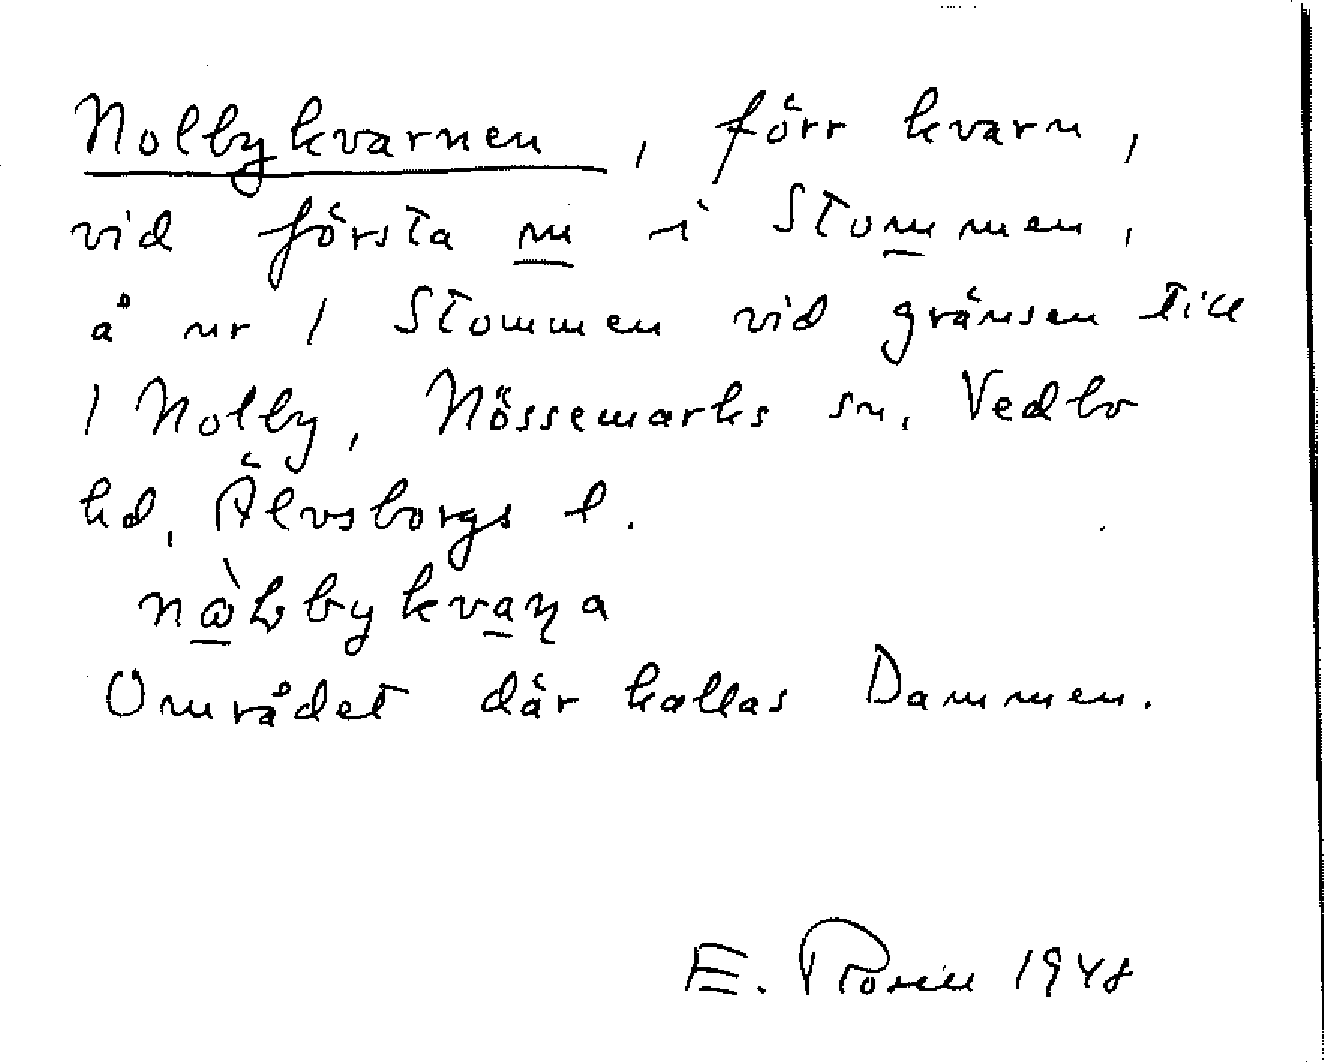 Nolbykvarnen, förr kvarn,
vid första m i Stommen,
å nr 1 Stommen vid gränsen till
1 Nolby, Nössemarks sn, Vedbo
hd, Älvsborgs l.
Området där kallas Dammen.
E. 1948